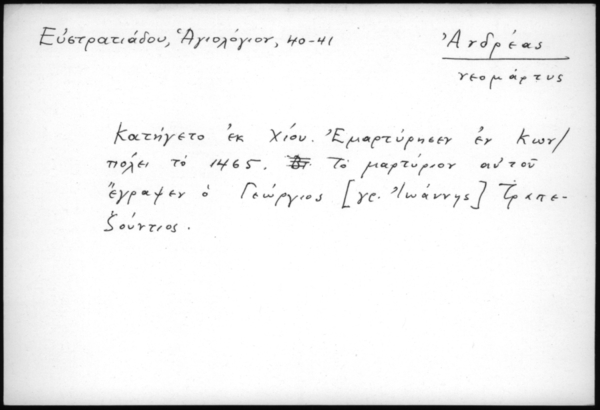 Εὐστρατιάδου, Ἁγιολόγιον, 40-41
Ἀνδρέας
νεομάρτυς
Κατήγετο ἐκ Χίου. Ἐμαρτύρησεν ἐν Κων/
πόλει τὸ 1465. Τὸ μαρτύριον αὐτοῦ
ἔγραψεν ὁ Γεώργιος [γρ. Ἰωάννης] Τραπε-
ζούντιος.